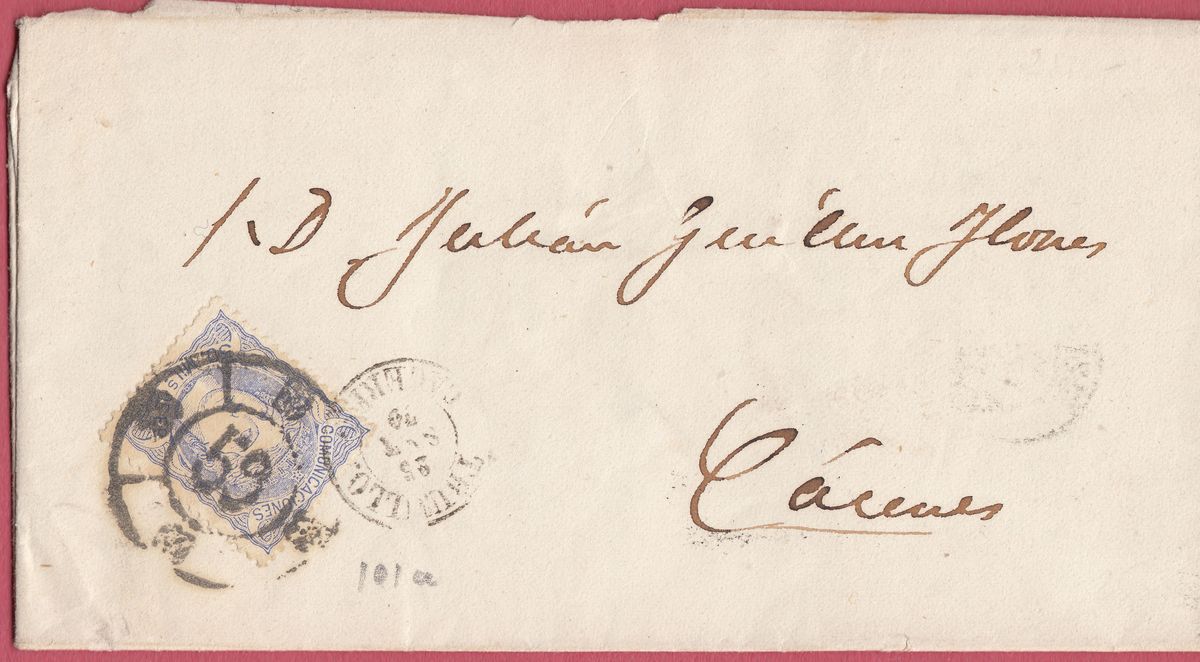 S. D. Julián Guillen Flores
Cáceres
COMUNICACIONES
TRUJILLO
101a